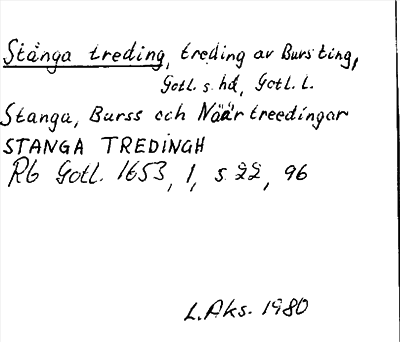 Stånga treding, treding av Burs ting,
Gotl. s. hd, Gotl. L.
Stanga, Burss och Näär treedingar
STANGA TREDINGH
Rb Gotl. 1653, 1, s. 22, 96
L. Aks. 1980